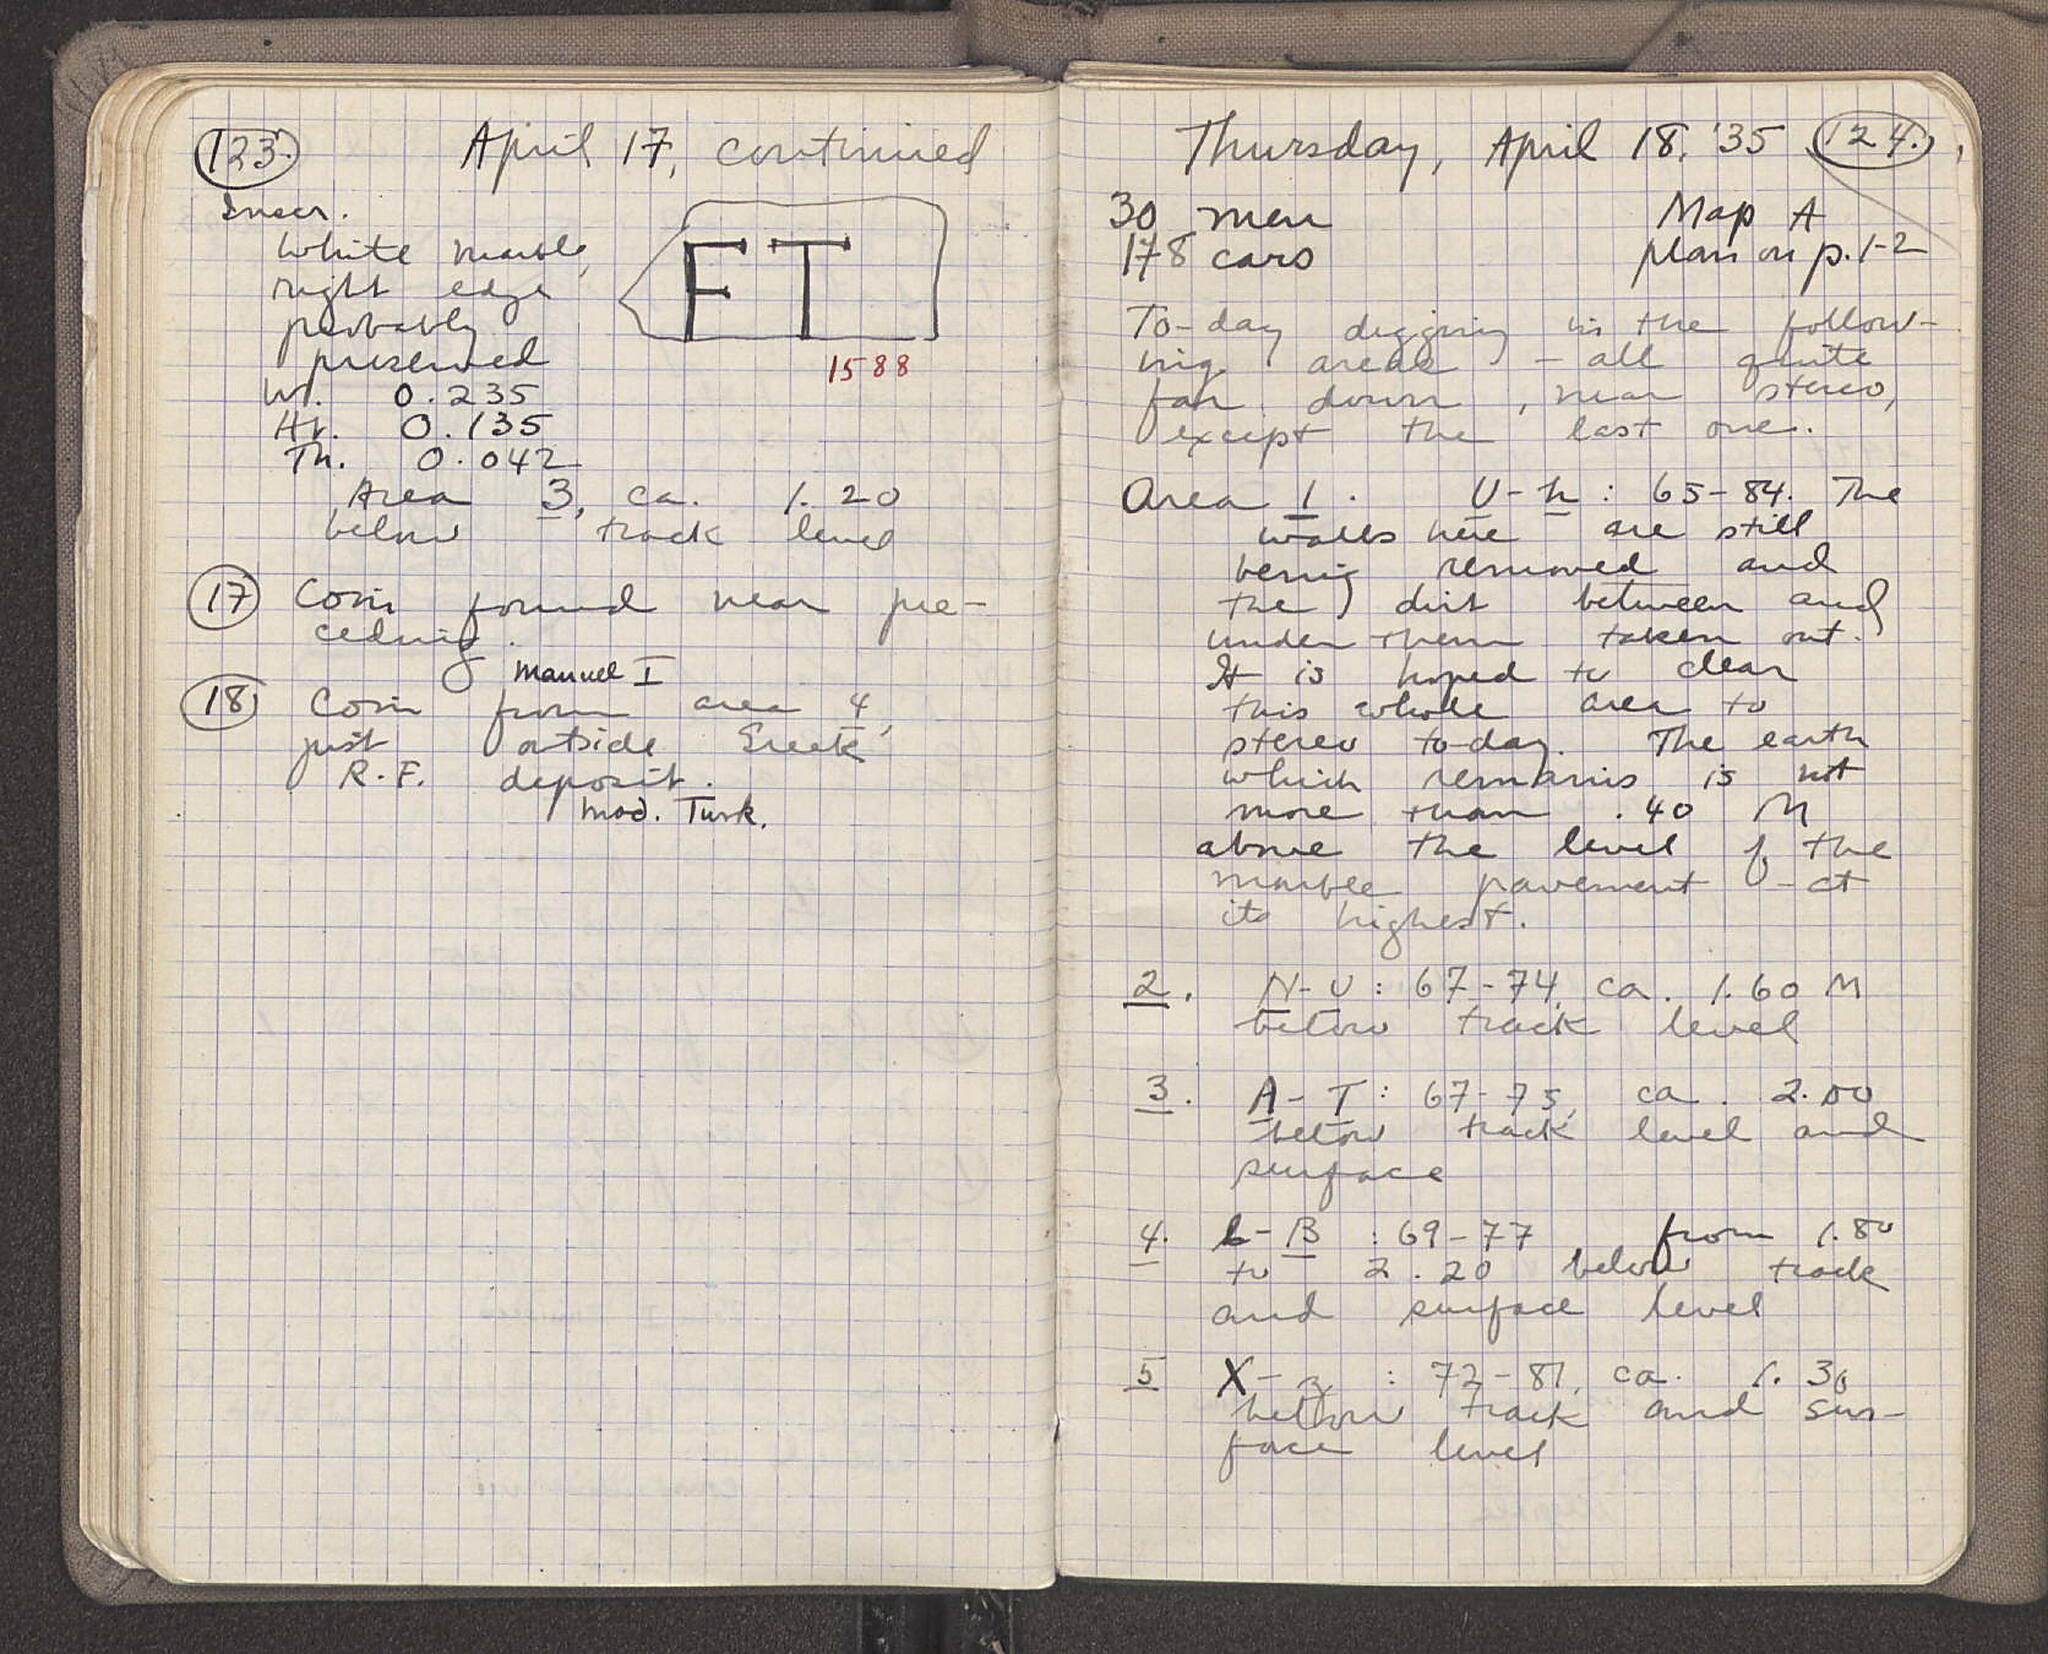 123.
April 17, continued
Inscr.
White marble,
right edge
probably
preserved
FT
1588
W. 0.235
Ht. 0.135
Th. 0.042
Area 3, ca. 1.20
below track level
17 Coin found near pre-
ceding.
Manuel I
18 Coin from area 4,
just outside Greek
R.F. deposit.
Mod. Turk.
Thursday, April 18, '35 124.
30 men Map A
178 cars plan on p. 1-2
To-day digging in the follow-
ing areas - all quite
far down, near stereo,
except the last one.
Area 1. U-h: 65-84. The
walls here are still
being removed and
the dirt between and
under them taken out.
It is hoped to clear
this whole area to
stereo to-day. The earth
which remains is not
more than .40 M
above the level of the
marble pavement - at
its highest.
2. N-U: 67-74, ca. 1.60 M
below track level
3. A-T: 67-75, ca. 2.00
below track level and
surface
4. -B: 69-77 from 1.80
to 2.20 below track
and surface level
5 X-z: 72-81, ca. 1.30
below track and sur-
face level